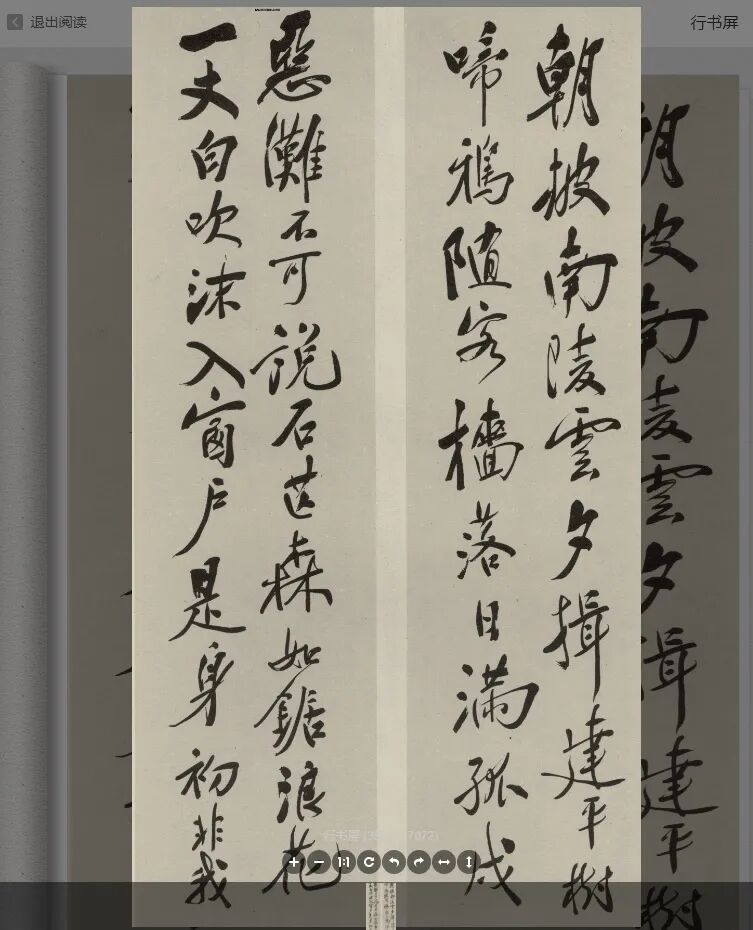 退出阅读
行书屏
朝披南陵雲夕揖建平樹
啼鴉隨客檣落日滿孤戍
惡灘不可說石芒森如鋸浪花
一丈白吹沫入窗戶是身初非我
行书屏
1:1